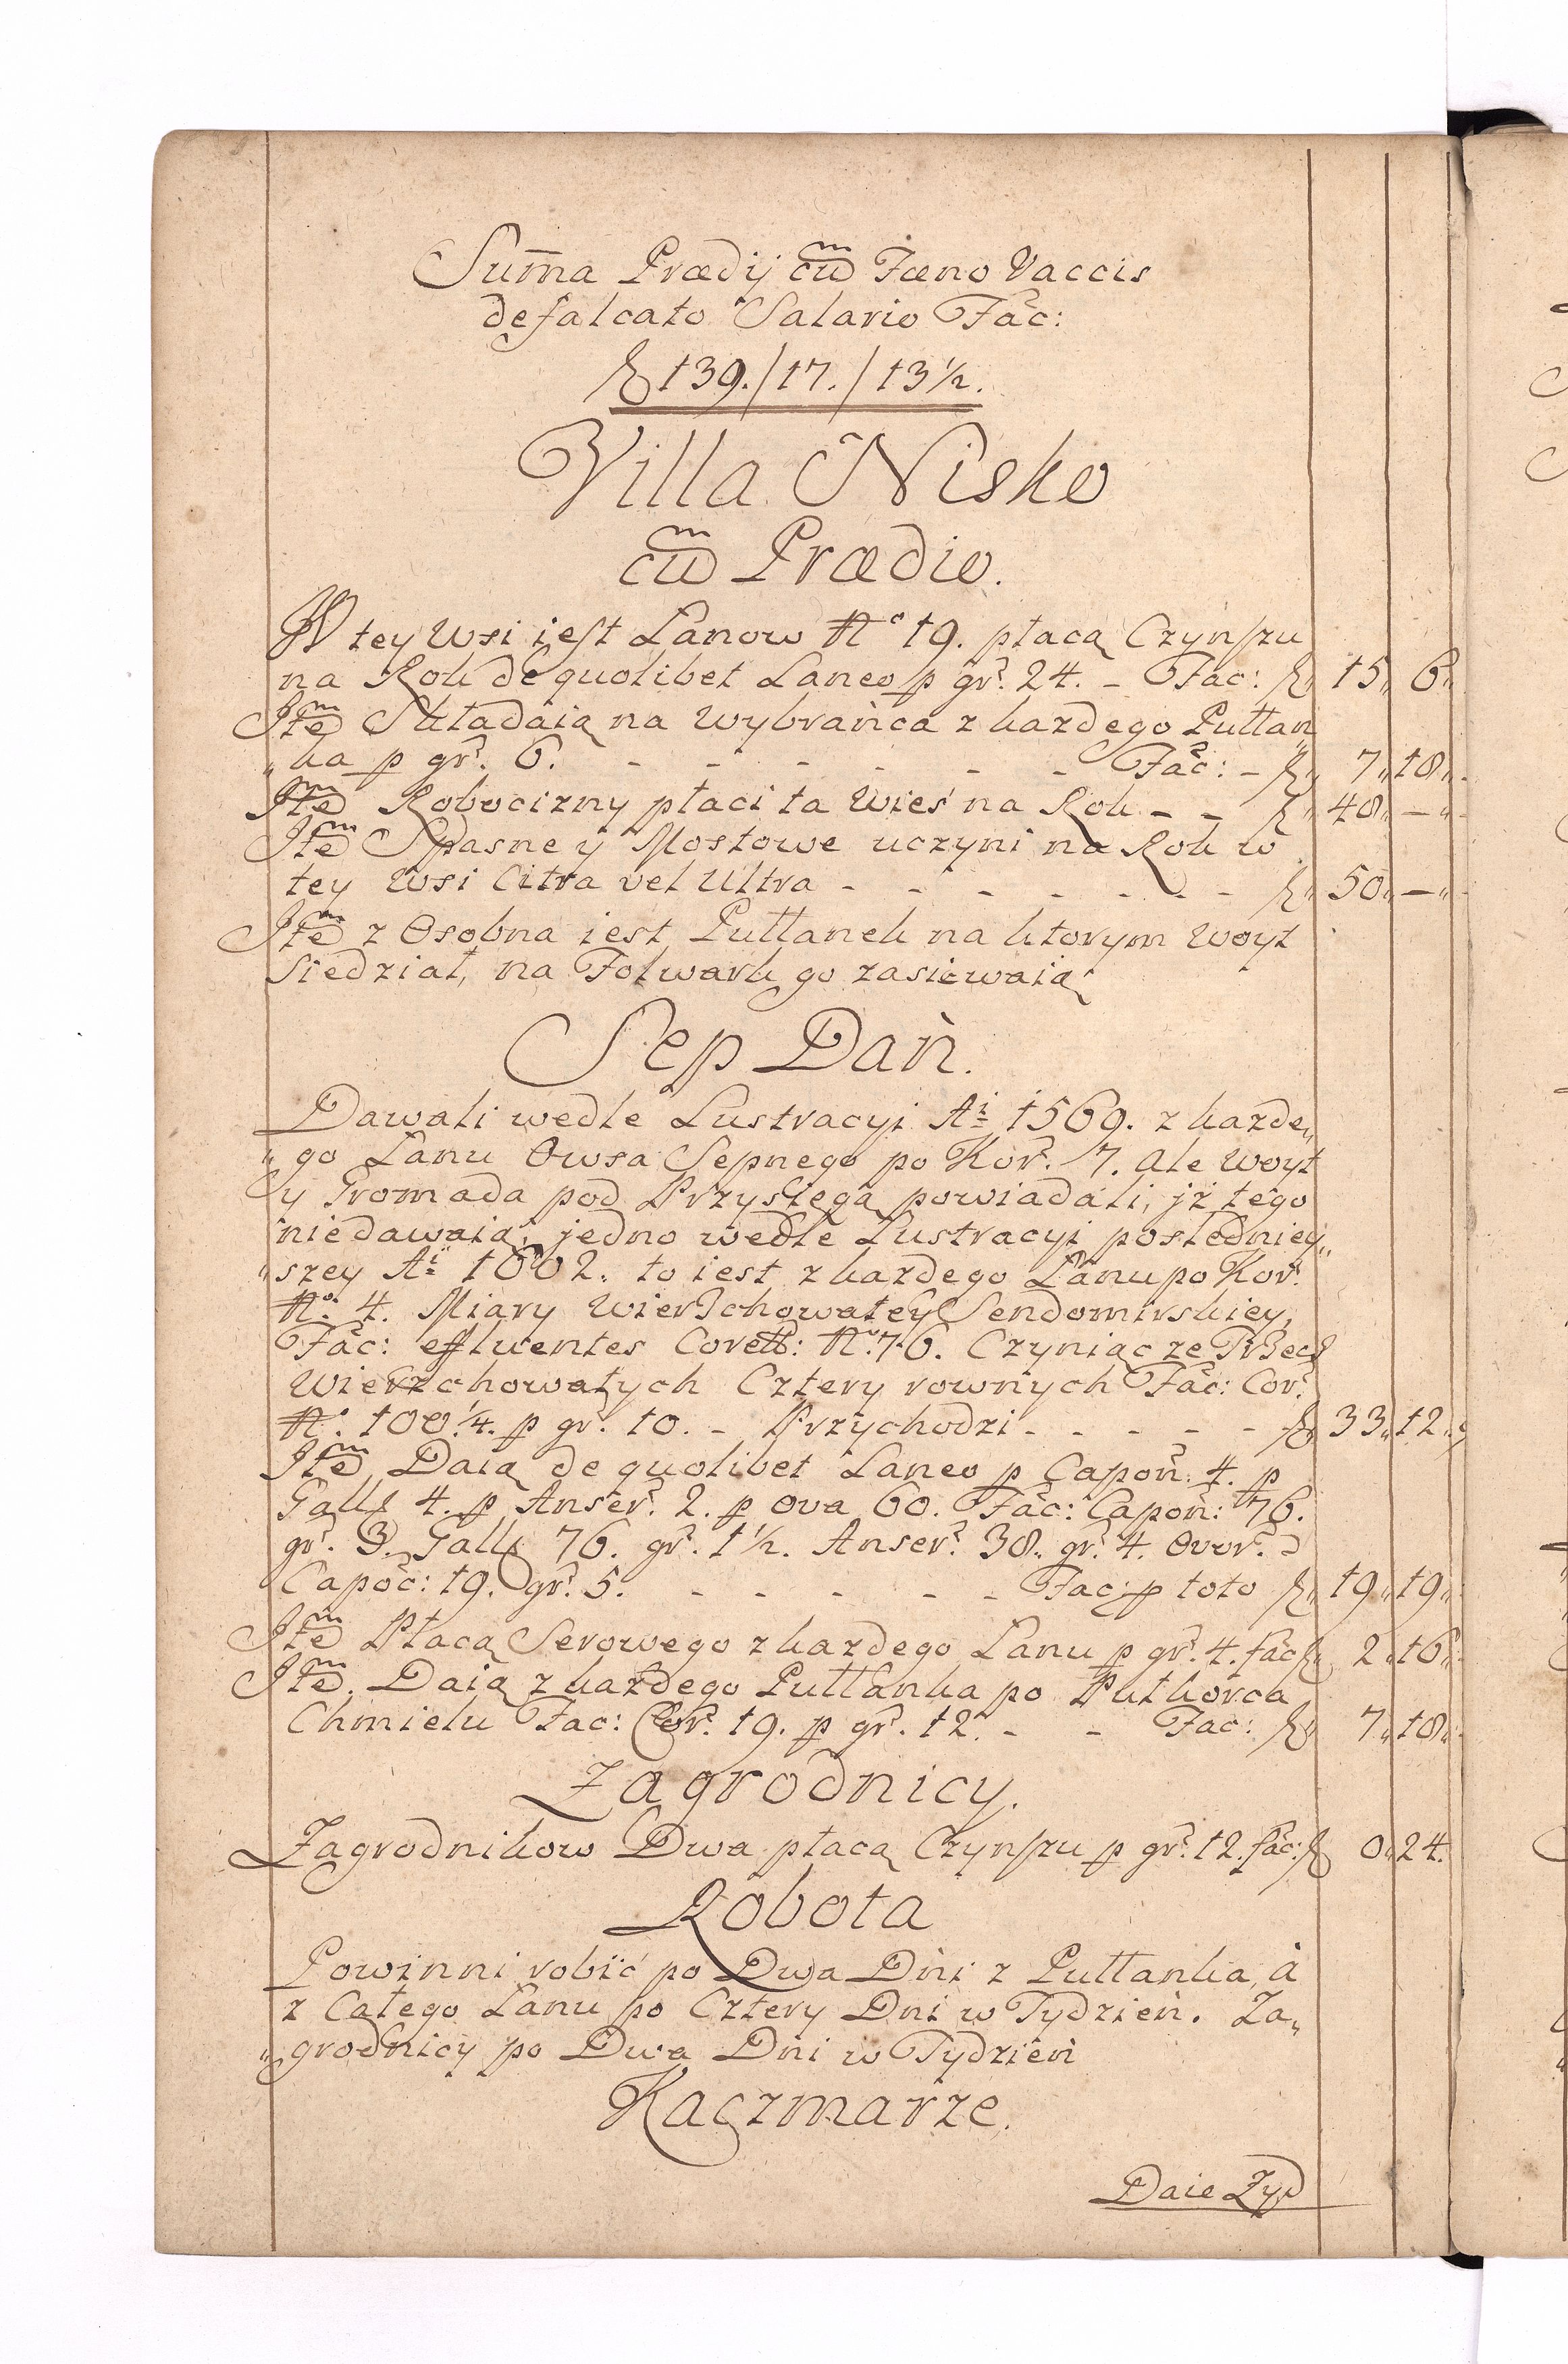 Sum̃a Prædij cũm Fœno Vaccis
defalcato Salario Fac:
fl 139./17./13½.
Villa Nisko
cũm Prædio.
W tey Wsi iest Łanow No 19. płacą Czynszu
na Rok de quolibet Laneo p gr. 24. - Fac: fl 15 6
Itẽm Składaią na Wybrańca z każdego Pułłan
„ka p gr. 6. - - - - - - Fac: - fl 7 18
Itẽm Robocizny płaci ta Wieś na Rok - - fl 48 —
Itẽm Spasne y Mostowe uczyni na Rok w
tey Wsi Citra vel Ultra - - - - - - - fl 50 —
Itẽm z Osobna iest Pułłanek na ktorym Woyt
Siedział, na Folwark go zasiewaią
Sep Dań.
Dawali wedle Lustracyi Ai 1569. z każde„
„go Łanu Owsa Sepnego po Kor. 7. ale Woyt
y Gromada pod Przysięgą powiadali, iż tego
niedawaią; jedno wedle Lustracyi posledniey„
„szey Ai 1602. to iest z każdego Łanu po Kor.
No. 4. Miary Wierzchowatey Sendomirskiey,
Fac: effluentes Coretb: No. 76. Czyniąc ze Trzech
Wierzchowatych Cztery rownych Fac: Cor.
No. 100¼. p gr. 10. - Przychodzi - - - - - fl 33 12
Itẽm Daią de quolibet Laneo p Capon: 4. p
Gall 4. p Anser. 2. p Ova 60. Fac: Capon: 76.
gr. 3. Gall 76. gr. 1½. Anser. 38. gr. 4. Ovor.
Capoc: 19. gr. 5. - - - - - Fac: p toto fl 19 19
Itẽm Płacą Serowego z każdego Łanu p gr. 4. fac fl 2 16
Itẽm. Daią z każdego Pułłanka po Pułkorca
Chmielu Fac: Cor. 19. p gr. 12. - - Fac: fl 7 18
Zagrodnicy.
Zagrodnikow Dwa płacą Czynszu p gr. 12. fac: fl 0 24.
Robota
Powinni robić po Dwa Dni z Pułłanka, à
z Całego Łanu po Cztery Dni w Tydzień. Za„
„grodnicy po Dwa Dni w Tydzień
Kaczmarze.
Daie Zyd